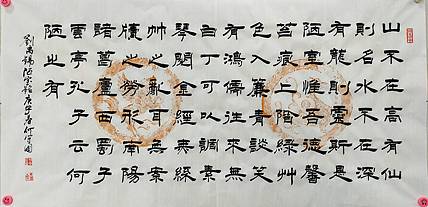 山不在高有仙
則名水不在深
有龍則靈斯是
陋室惟吾德馨
苔痕上階綠艸
色入簾青談笑
有鴻儒往來無
白丁可以調素
琴閱金經無絲
竹之亂耳無案
牘之勞形南陽
諸葛廬西蜀子
雲亭孔子云何
陋之有
劉禹錫陋室銘庚子春何